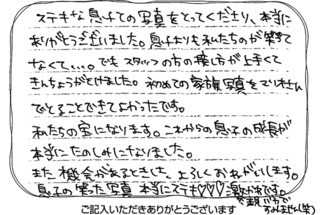 ステキな息子での写真をとってくださり、本当に
ありがとうございました。息子よりも私たちのが笑えて
なくて...。でもスタッフの方の接し方が上手くて
きんちょうがとけました。初めての家族写真をでりさん
でとることができてよかったです。
私たちの宝になります。これからの息子の成長が
本当にたのしみになりました。
また機会があるときにも、よろしくおねがいします。
息子の笑った写真 本当にステキ♡♡♡激かわです。
すみません(笑)
ご記入いただきありがとうございます